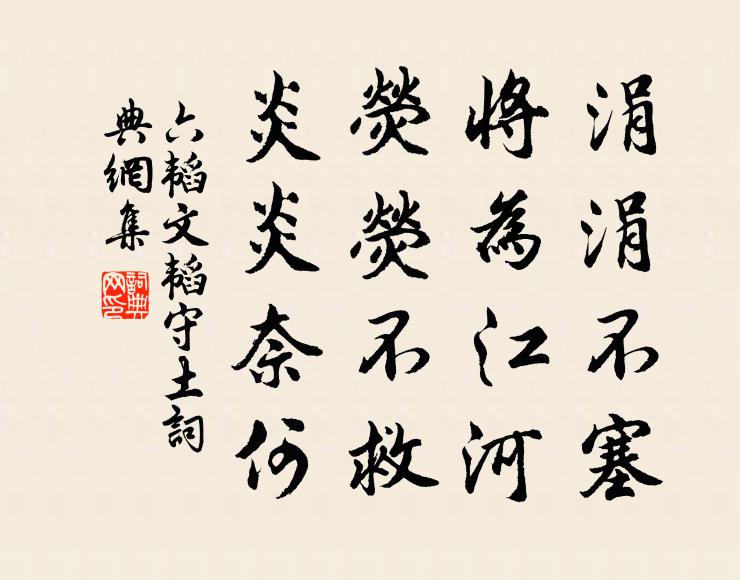 涓涓不塞
將為江河
熒熒不救
炎炎奈何
六韜文韜守土詞
典網集
詞典网印